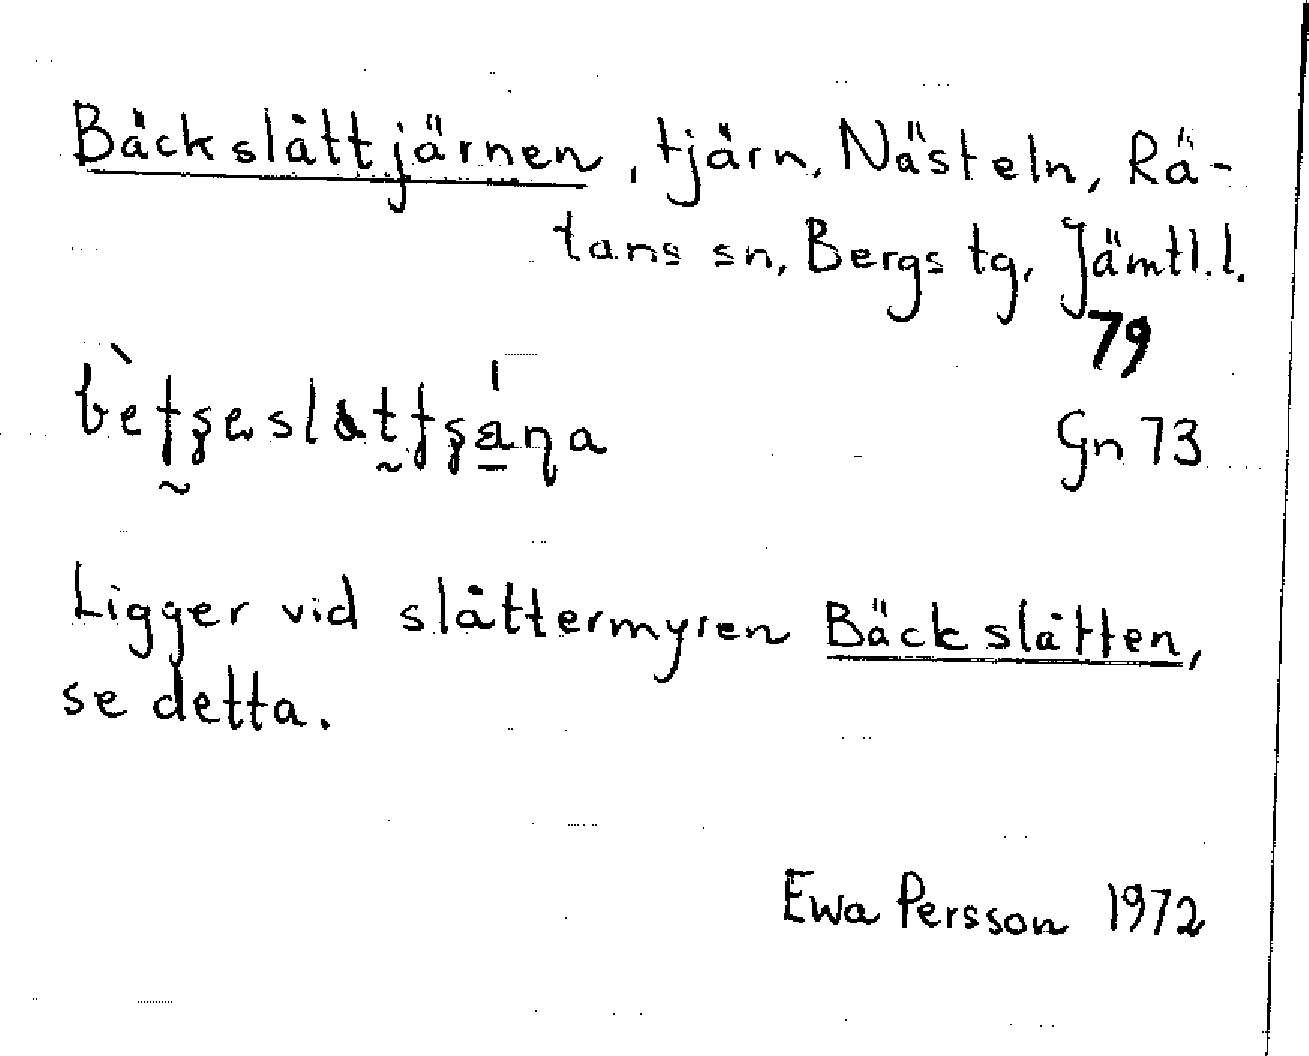 Bäckslåttjärnen, tjärn, Nästeln, Rä-
tans sn, Bergs tg, Jämtl.l.
79
Gn 73
Ligger vid slåttermyren Bäckslåtten,
se detta.
Ewa Persson 1972